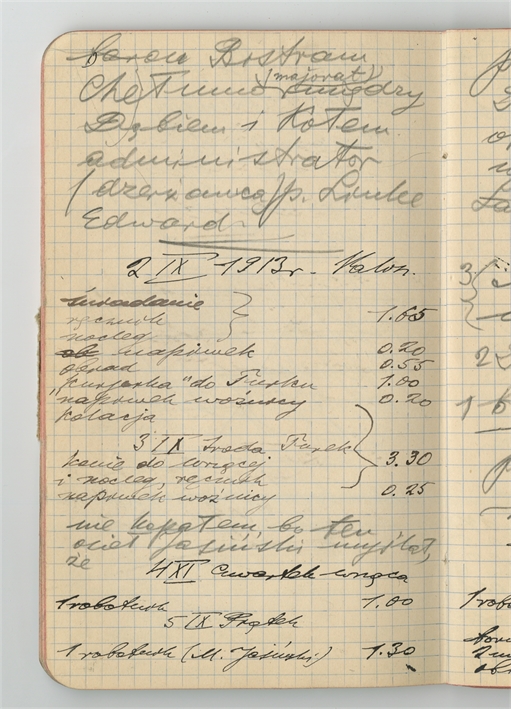 baron Bistram
Chełmno (majorat) między
Dębiem i Kołem
administrator
(dzierżawca) p. Linke
Edward
2 IX 1913 r.
śniadanie
ręcznik 1.65
nocleg
ob napiwek 0.20
obiad 0.55
"kurjerka" do Turku 1.00
napiwek woźnicy 0.20
kolacja
3 IX środa Turek
konie do Wrzącej 3.30
i nocleg, ręcznik
napiwek woźnicy 0.25
nie kopałem, bo ten
osieł Jasiński myślał,
że
4 XI czwartek Wrząca
1 robotnik 1.00
5 IX Piątek
1 robotnik (M. Jasiński) 1.30